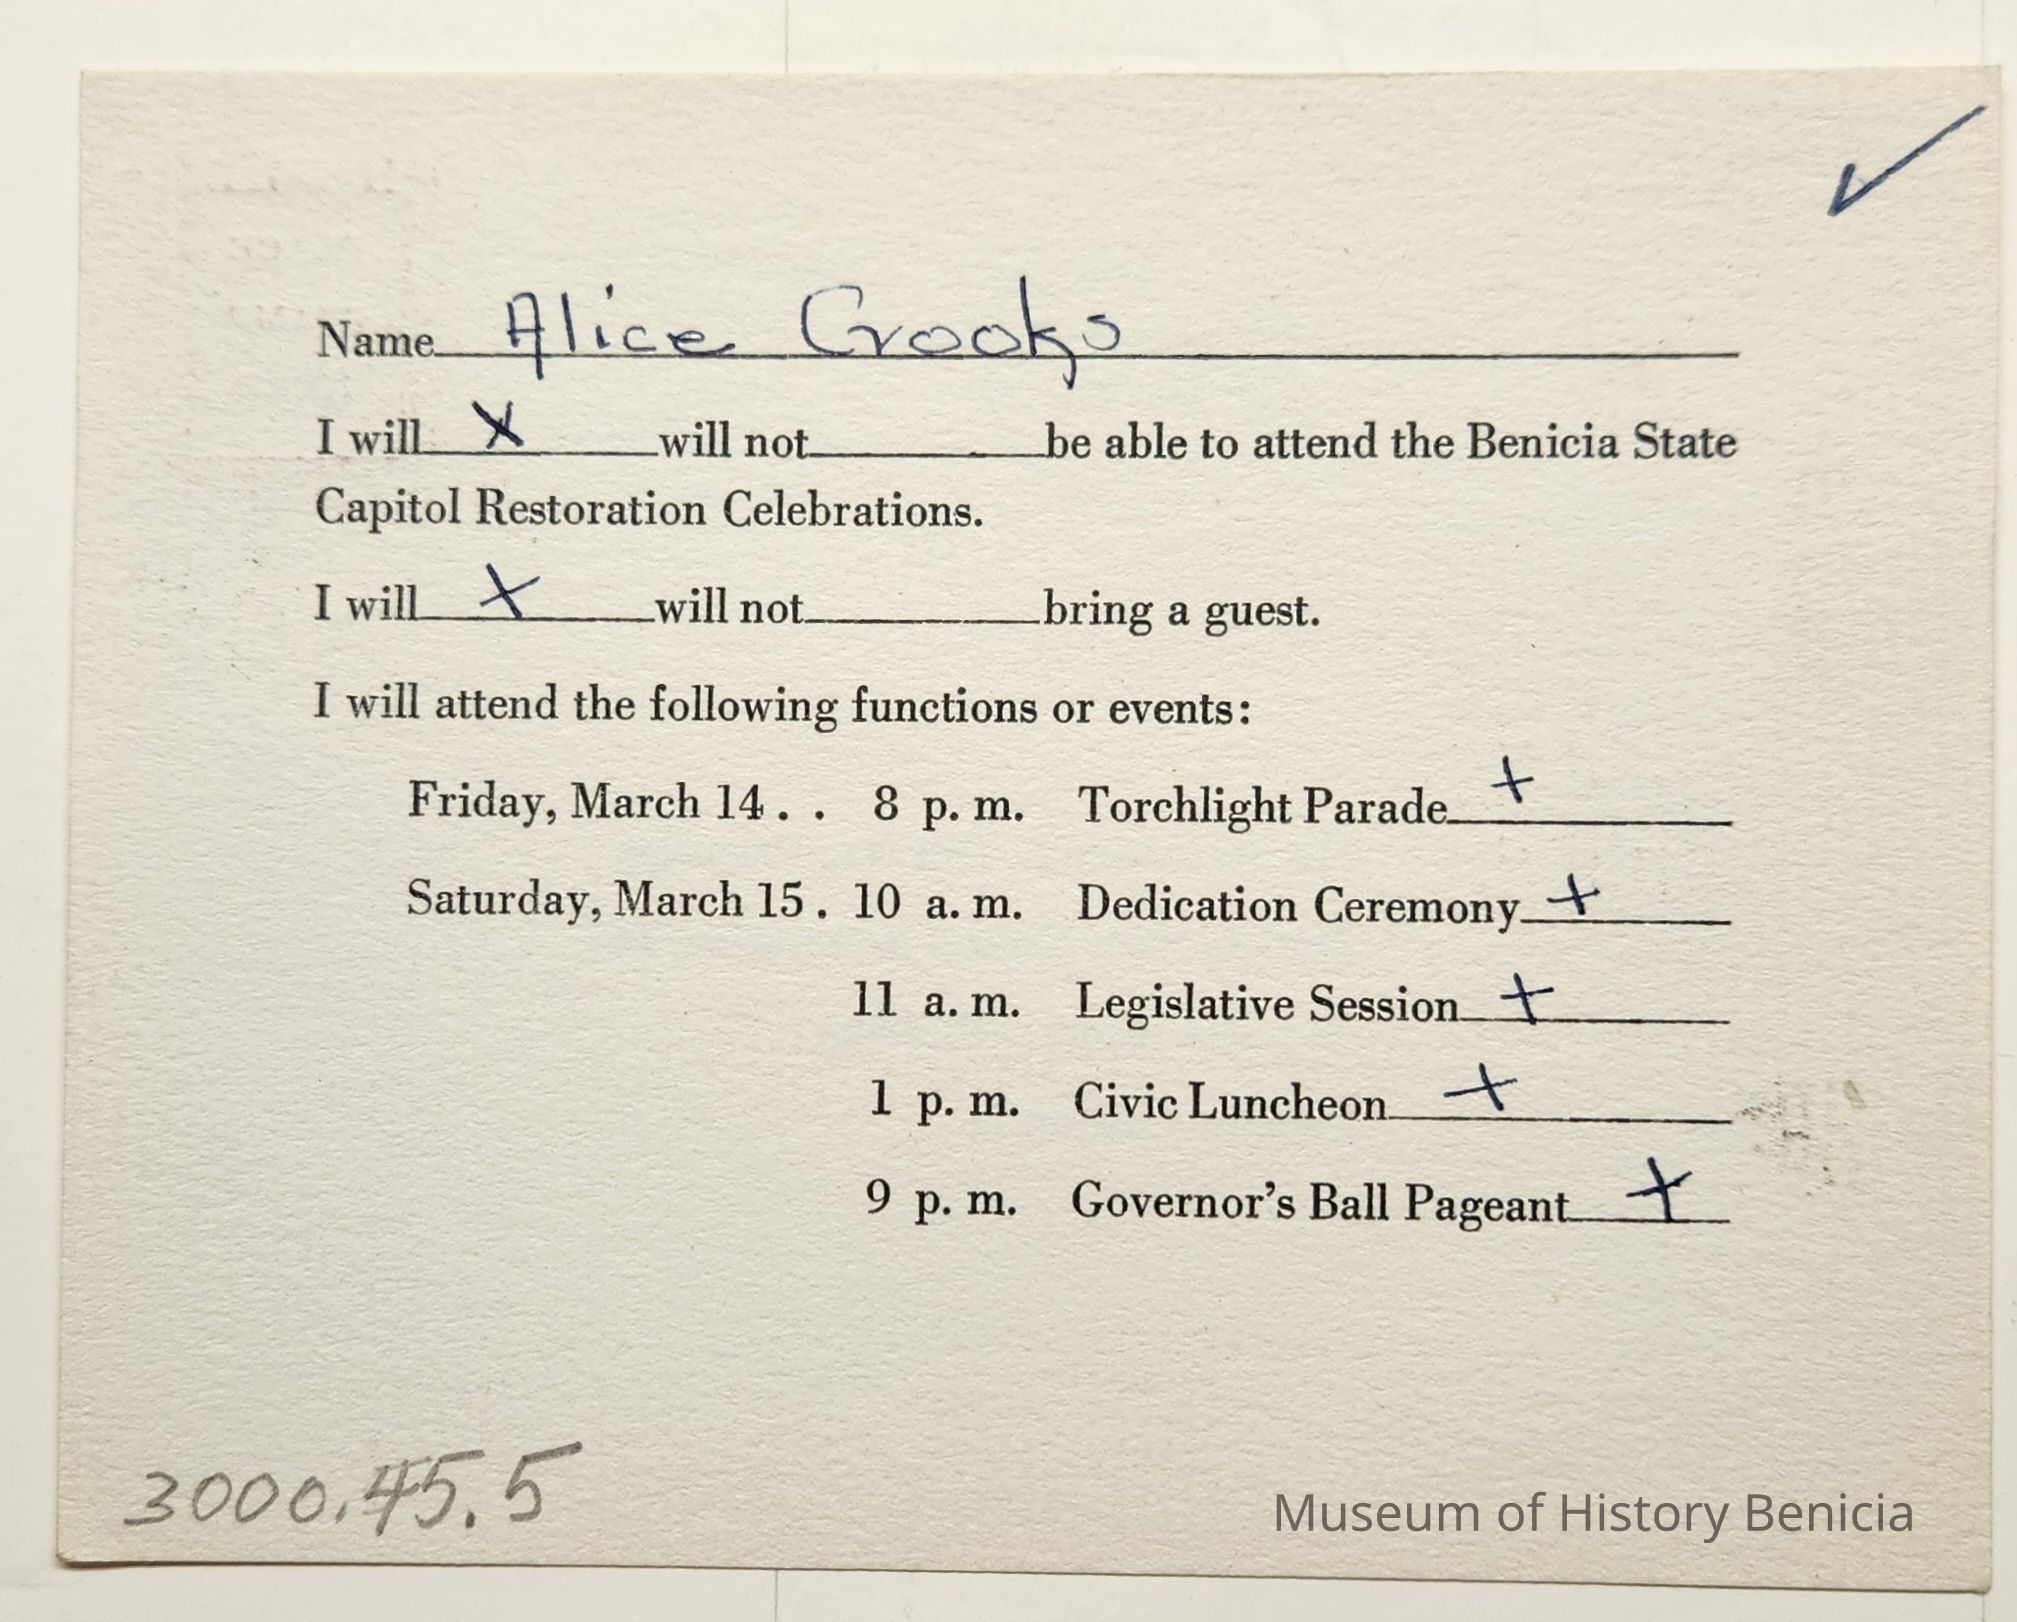 ✓
Name Alice Crooks
I will X will not be able to attend the Benicia State
Capitol Restoration Celebrations.
I will X will not bring a guest.
I will attend the following functions or events:
Friday, March 14 . . 8 p. m. Torchlight Parade +
Saturday, March 15 . 10 a. m. Dedication Ceremony +
11 a. m. Legislative Session +
1 p. m. Civic Luncheon +
9 p. m. Governor's Ball Pageant +
3000.45.5
Museum of History Benicia